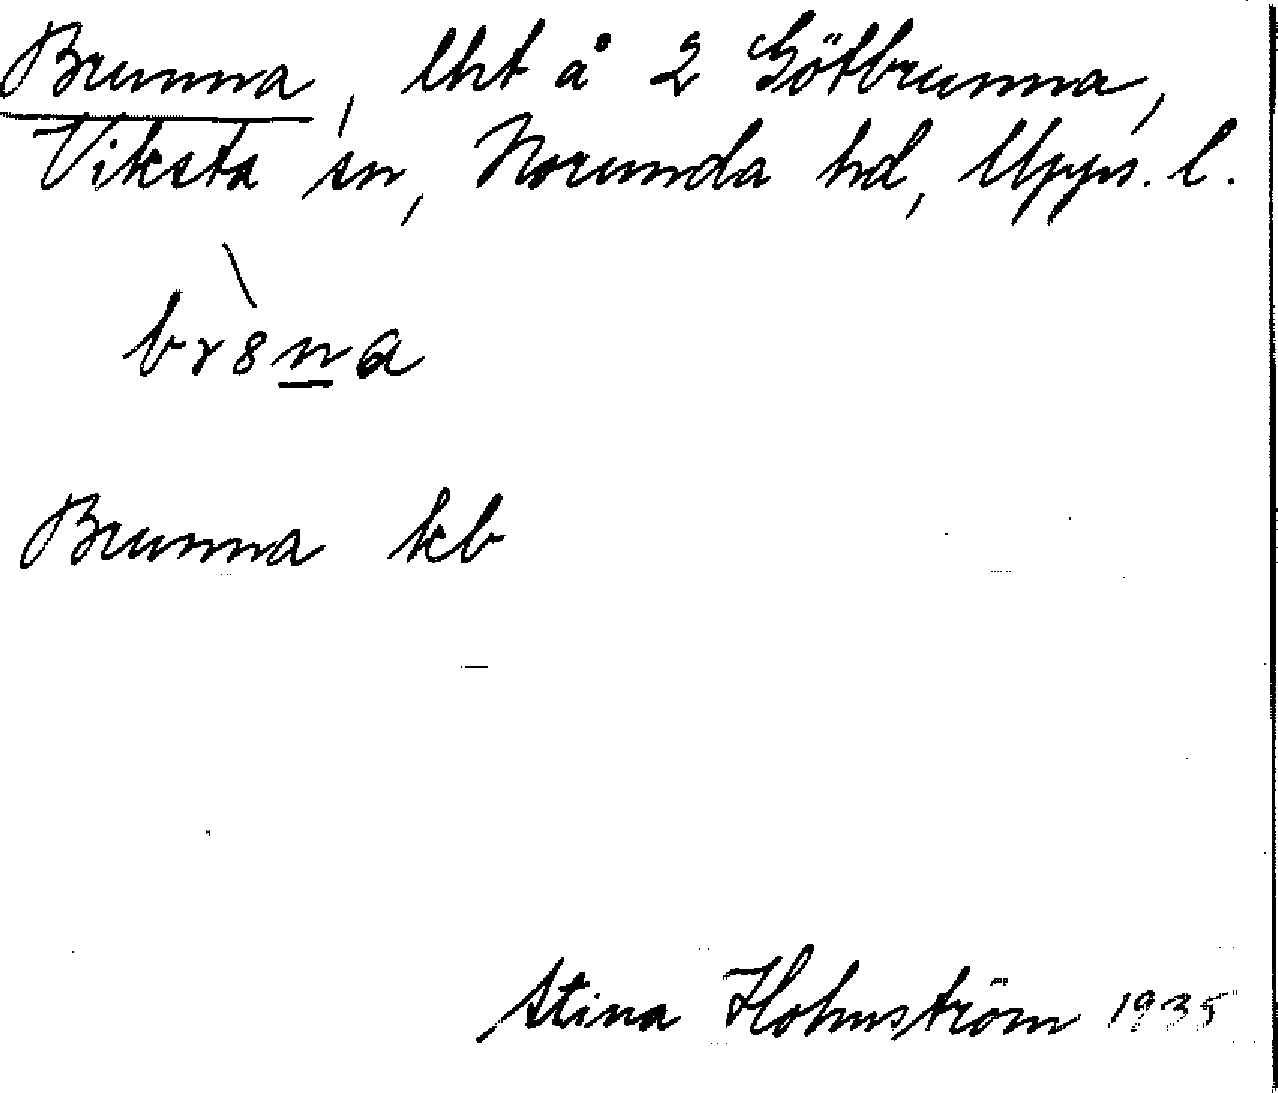 Brunna, lht å 2 Götbrunna,
Viksta sn, Norunda hd, Upps. l.
br8na
Brunna kb
Stina Holmström 1935